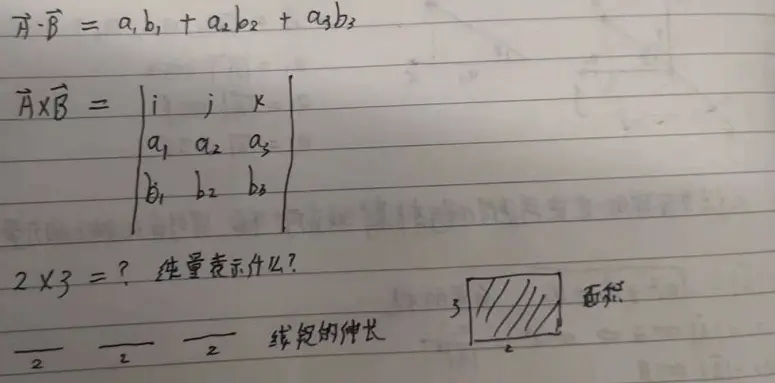 A⃗·B⃗ = a₁b₁ + a₂b₂ + a₃b₃
A⃗×B⃗ =
i j k
a₁ a₂ a₃
b₁ b₂ b₃
2×3 = ? 纯量表示什么?
3 面积
2
2 2 2 线段的伸长